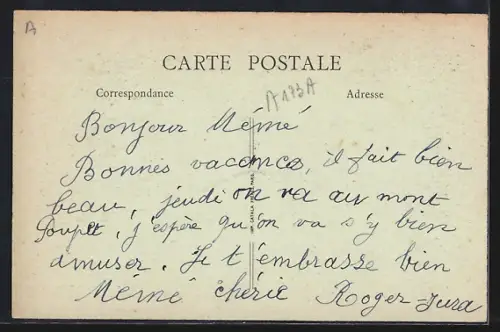 A
CARTE POSTALE
Correspondance
Adresse
A193A
Bonjour Mémé
Bonnes vacances, il fait bien
beau, jeudi on va au mont
Soupet, j'espère qu'on va s'y bien
amuser. Je t'embrasse bien
Mémé chérie Roger-Jura